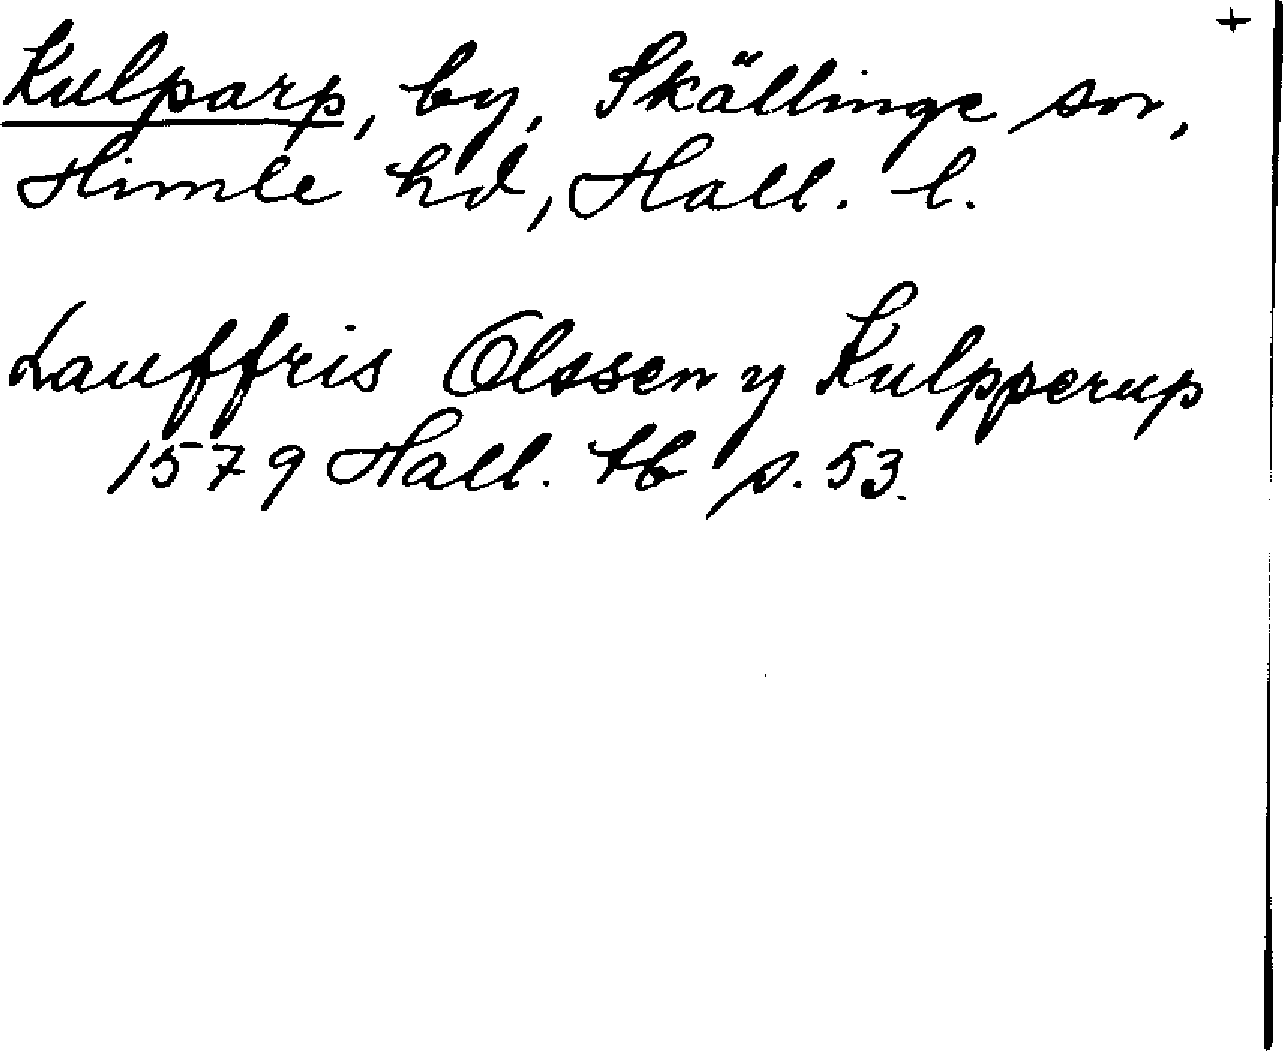 +
Kulparp, by, Skällinge sn,
Himle hd, Hall. l.
Lauffris Olssen y Kulpperup
1579 Hall. tb s. 53.